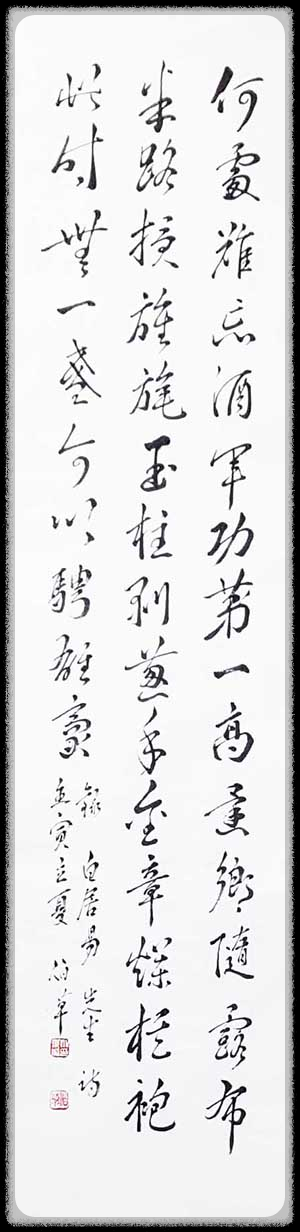 何處難忘酒軍功第一高還鄉隨露布
半路授旌旄玉柱剝蔥手金章爛椹袍
此時無一盞何以騁雄豪
錄白居易先生詩
庚寅立夏